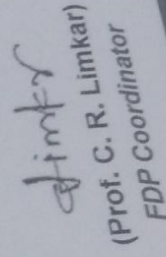 (Prof. C. R. Limkar)
FDP Coordinator